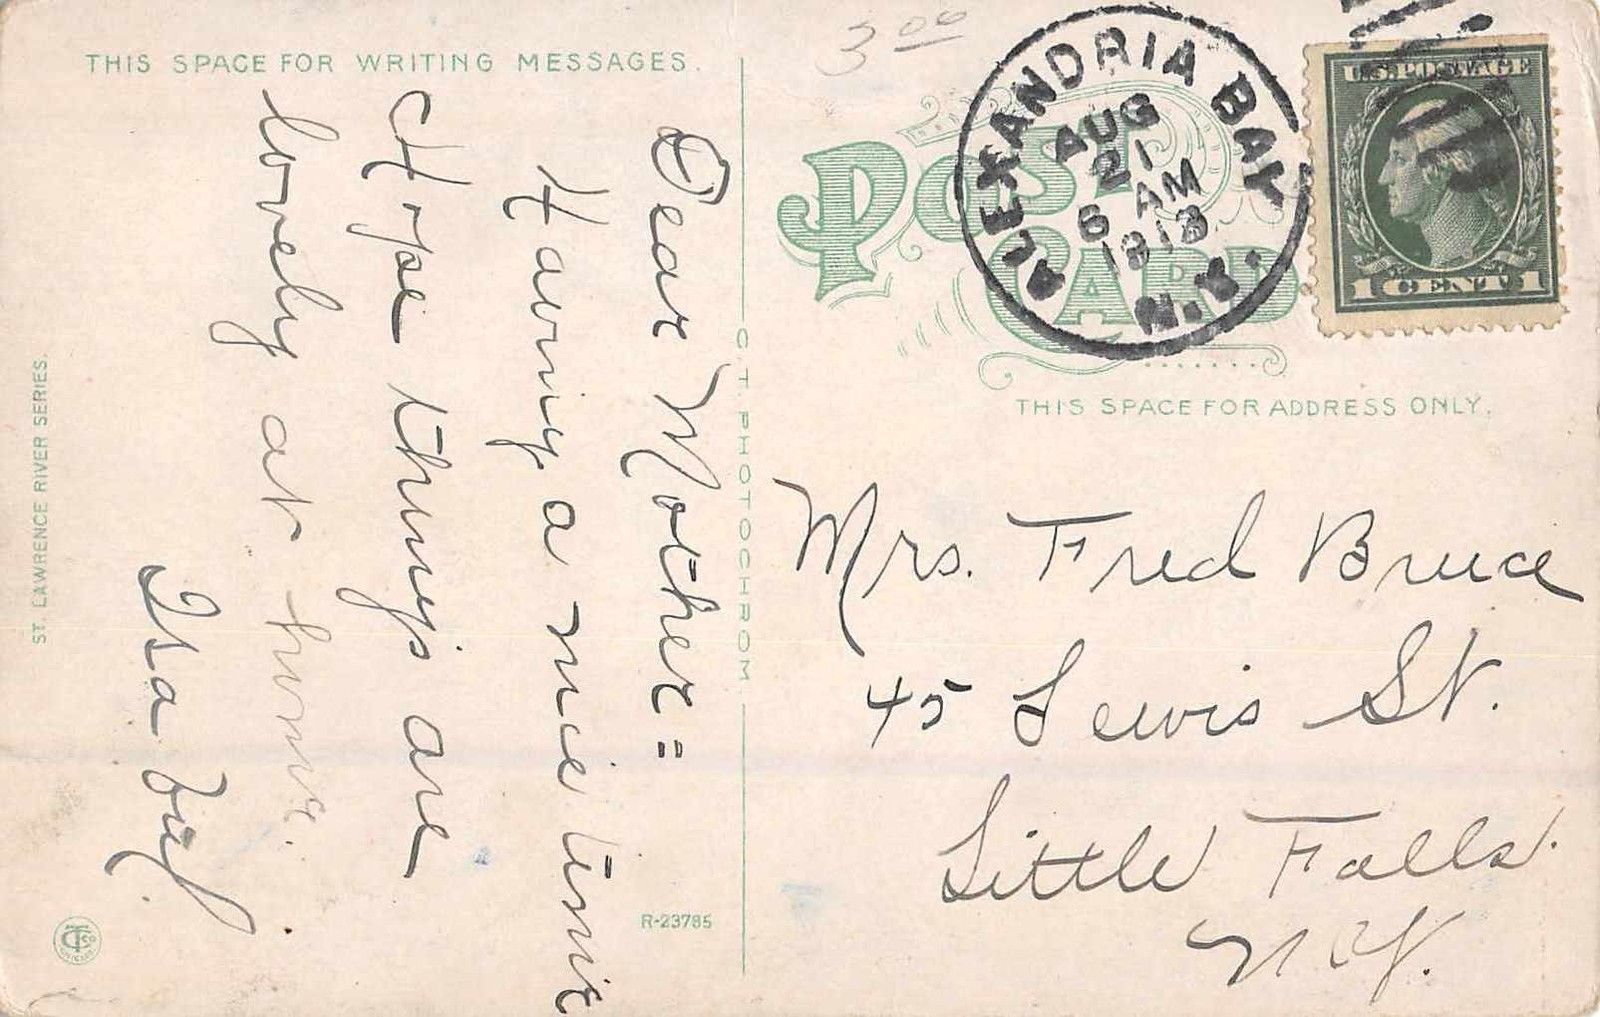 THIS SPACE FOR WRITING MESSAGES.
Dear Mother =
Having a nice time
Hope things are
lovely at home.
Isa
ST. LAWRENCE RIVER SERIES.
C. T. PHOTOCHROM
R-23785
3.00
POST CARD
ALEXANDRIA BAY
AUG
21
6 AM
1913
N.Y.
U.S. POSTAGE
1 CENT 1
THIS SPACE FOR ADDRESS ONLY.
Mrs. Fred Bruce
45 Lewis St.
Little Falls.
N.Y.